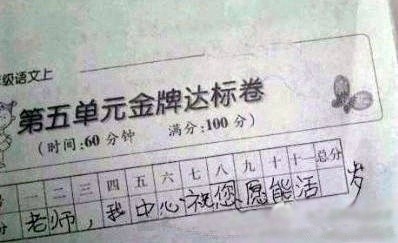 年级语文上
第五单元金牌达标卷
(时间:60分钟 满分:100分)
一 二 三 四 五 六 七 八 九 十 十一 总分
分 老师，我中心祝您愿能活岁